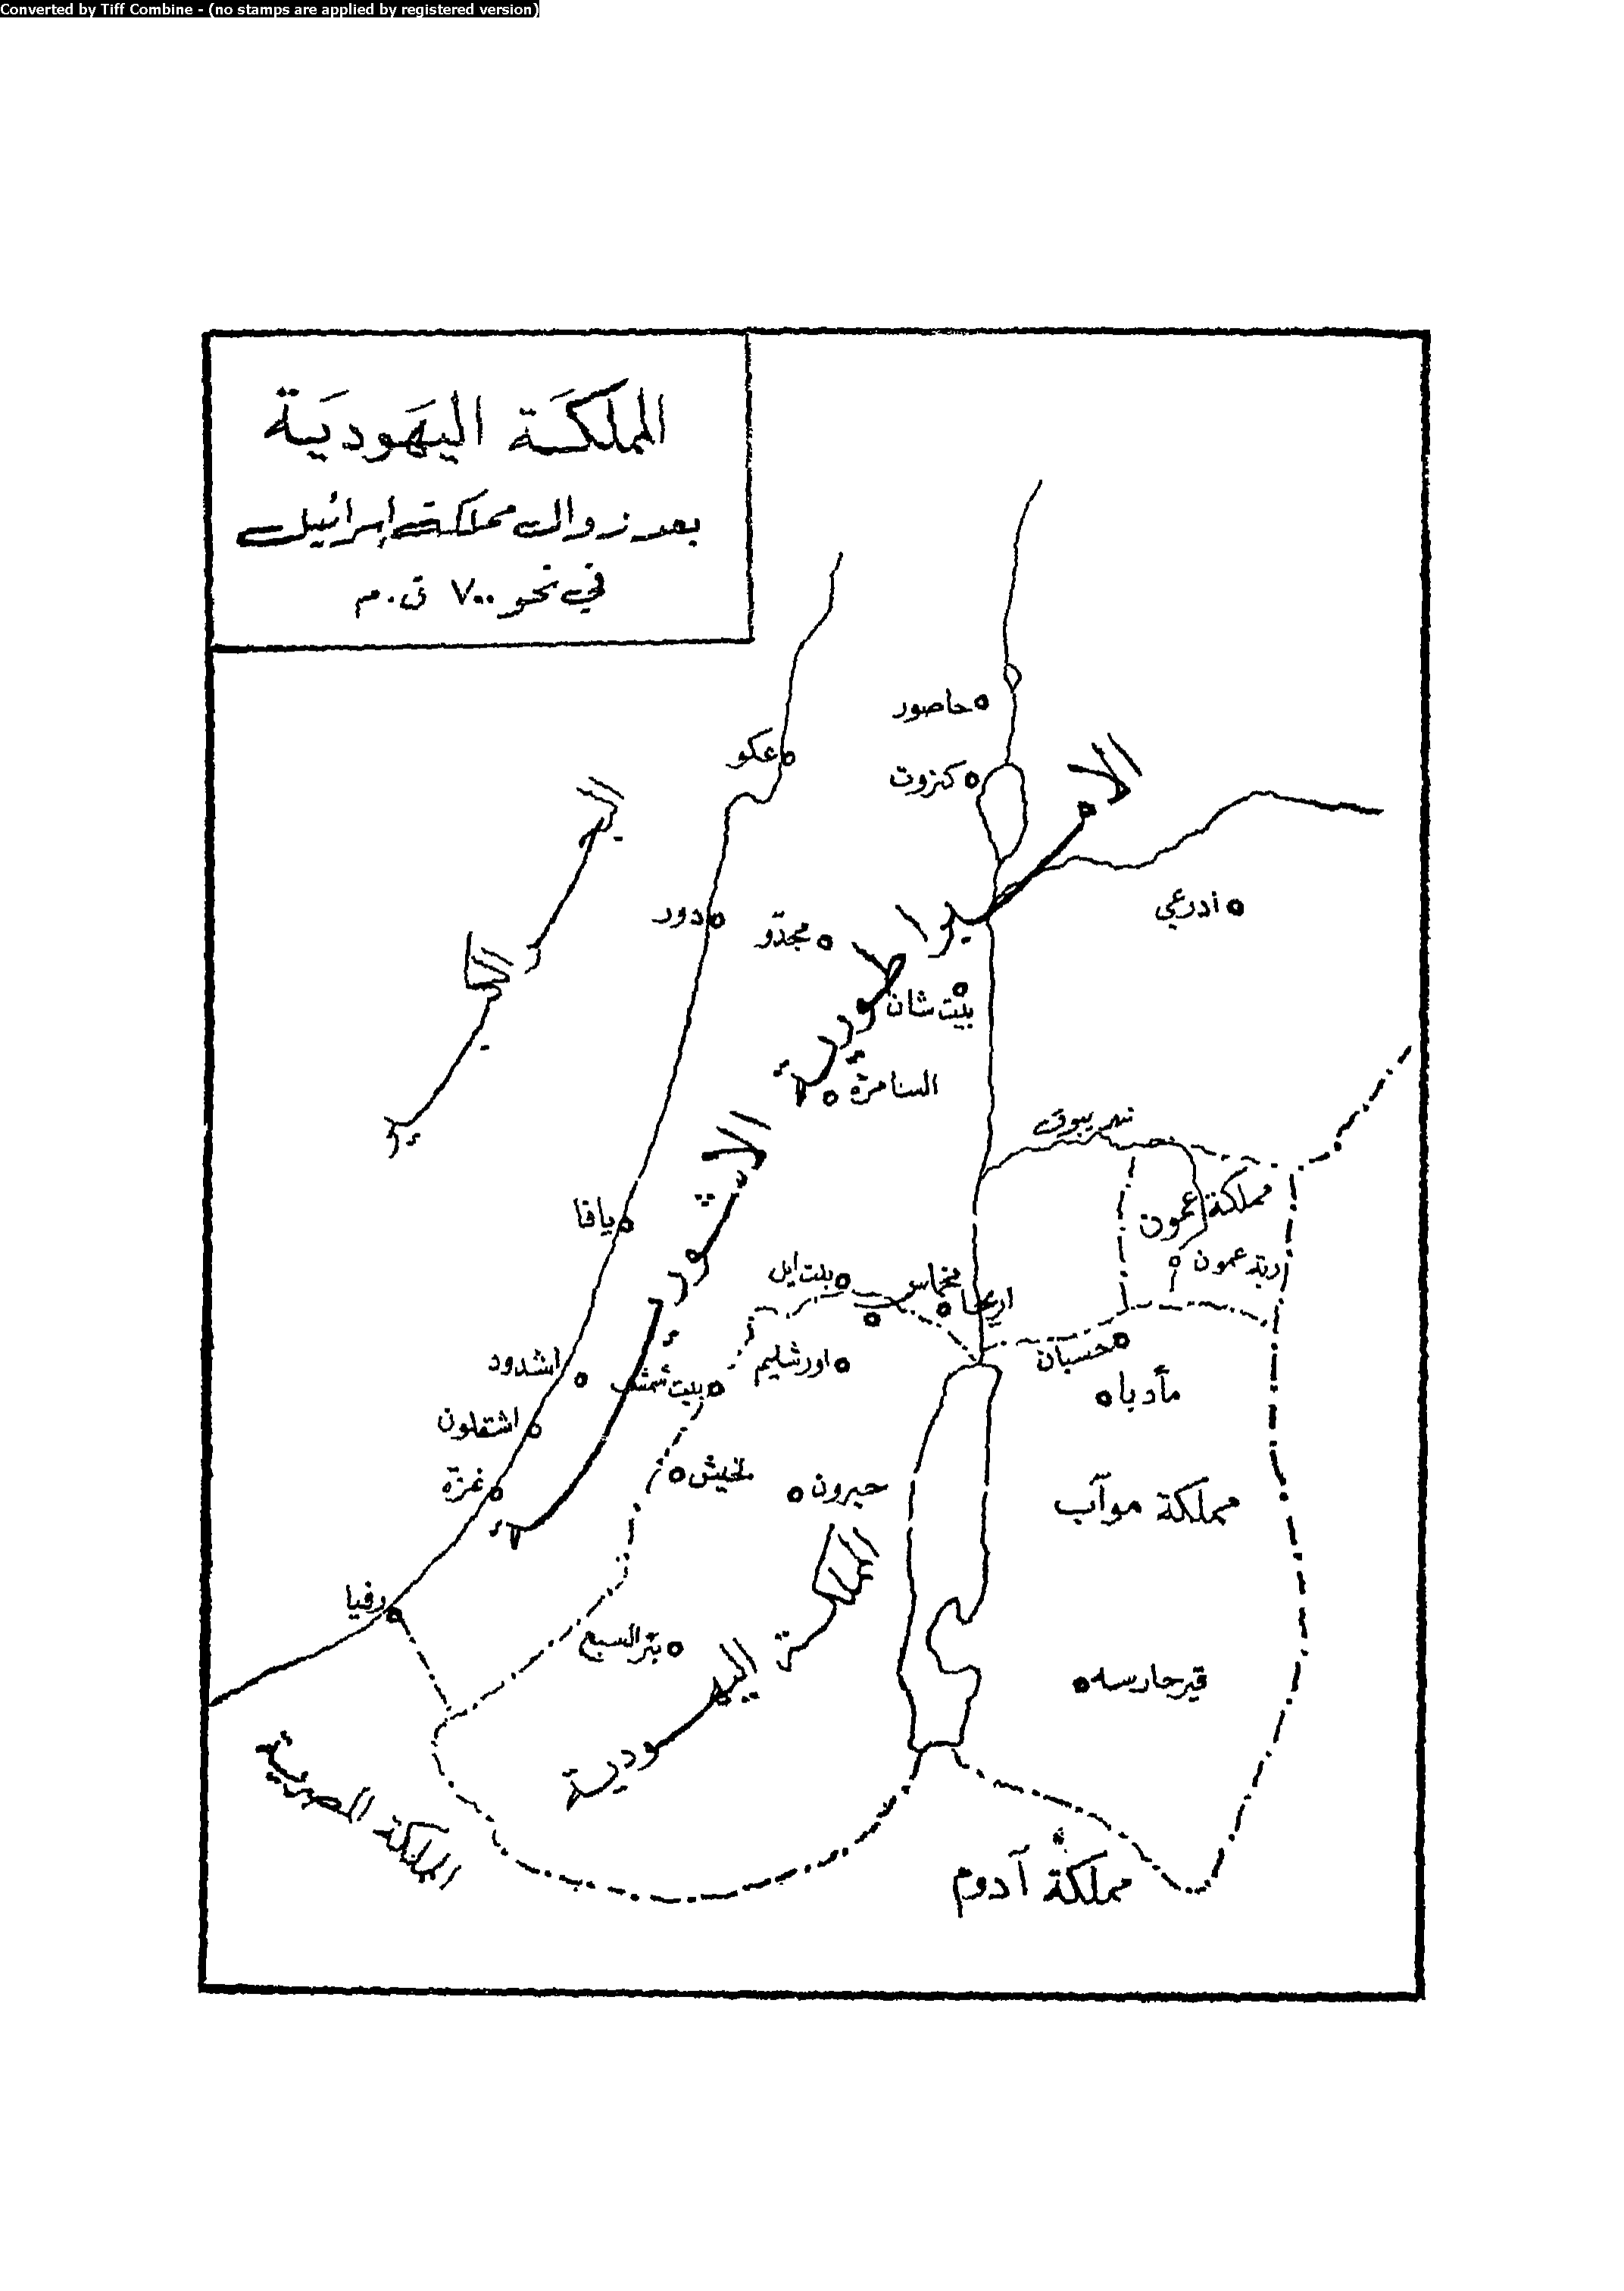 Converted by Tiff Combine - (no stamps are applied by registered version)
المملَكَة اليَهَوديَة
بعد زوال مملكة إسرائيل
في نحو ٧٠٠ ق.م
حاصور
عكو
كنروت
البحر الكبير
الامبراطورية
ادرعي
دور
مجدّو
بيت شان
السامرة
نهر يبوق
الاشورية
مملكة عمون
يافا
ربة عمون
بيت ايل
مخماس
اريحا
حسبان
اشدود
بيت شمش
اورشليم
مأدبا
اشقلون
لخيش
حبرون
غزة
مملكة موآب
رفيا
بئر السبع
المملكة اليهودية
قير حارسه
المملكة المصرية
مملكة آدوم